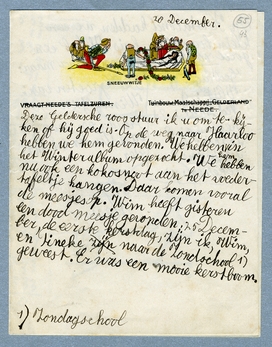 20 December.
65
SNEEUWWITJE
VRAAGT NEEDE'S TAFELZUREN.
Tuinbouw Maatschappij „GELDERLAND"
Te NEEDE.
Deze Geldersche roos stuur ik u om te kij-
ken of hij goed is. Op de weg naar Haarloo
hebben we hem gevonden. We hebben in
het Winteralbum opgezocht. We hebben
nu ook een kokosnoot aan het voeder-
tafeltje hangen. Daar komen vooral
de meesjes Wim heeft gisteren
een dood meesje gevonden, 25 Decem-
ber, de eerste kerstdag, zijn ik, Wim,
en Tineke naar de Zondschool 1)
geweest. Er was een mooie kerstboom.
1) Zondagschool